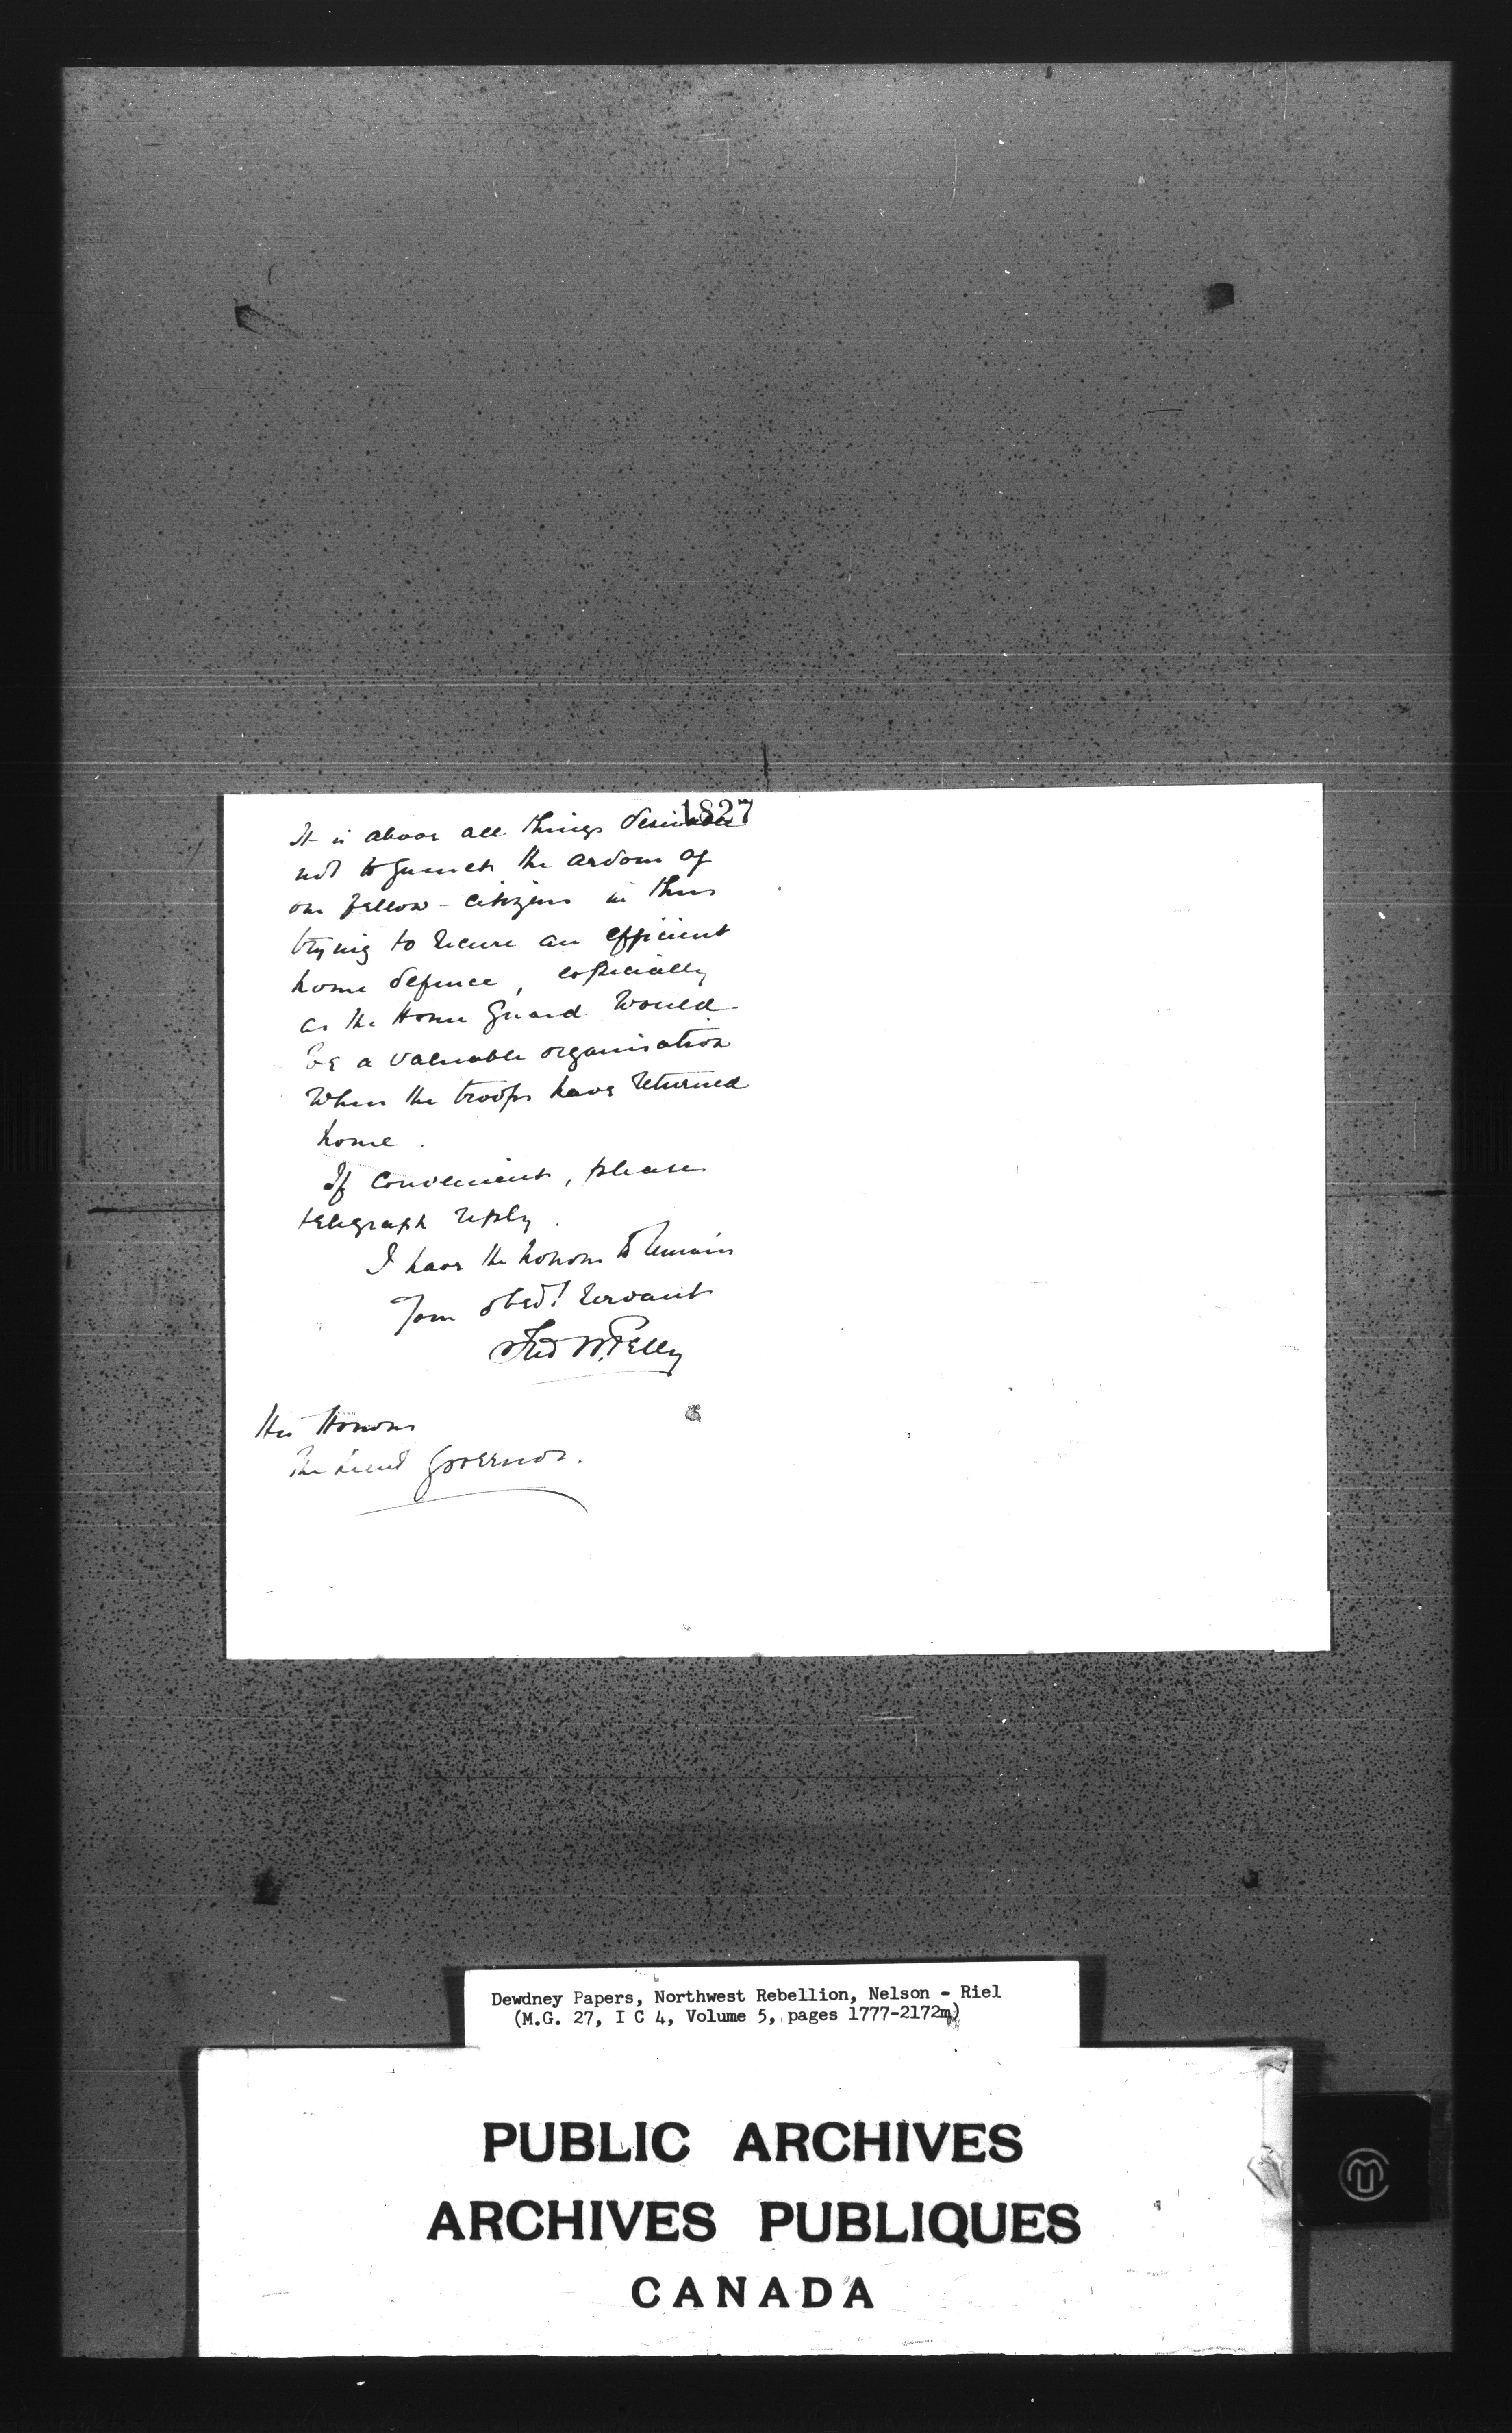 1827
It is above all things desirable
not to quench the ardour of
our fellow-citizens in thus
trying to secure an efficient
home defence, especially
as the Home Guard would
be a valuable organisation
when the troops have returned
home.
If convenient, please
telegraph reply.
I have the honour to remain
Your obedt servant
Fred W. Pelly
His Honour
The Lieut Governor.
Dewdney Papers, Northwest Rebellion, Nelson - Riel
(M.G. 27, I C 4, Volume 5, pages 1777-2172m)
PUBLIC ARCHIVES
ARCHIVES PUBLIQUES
CANADA